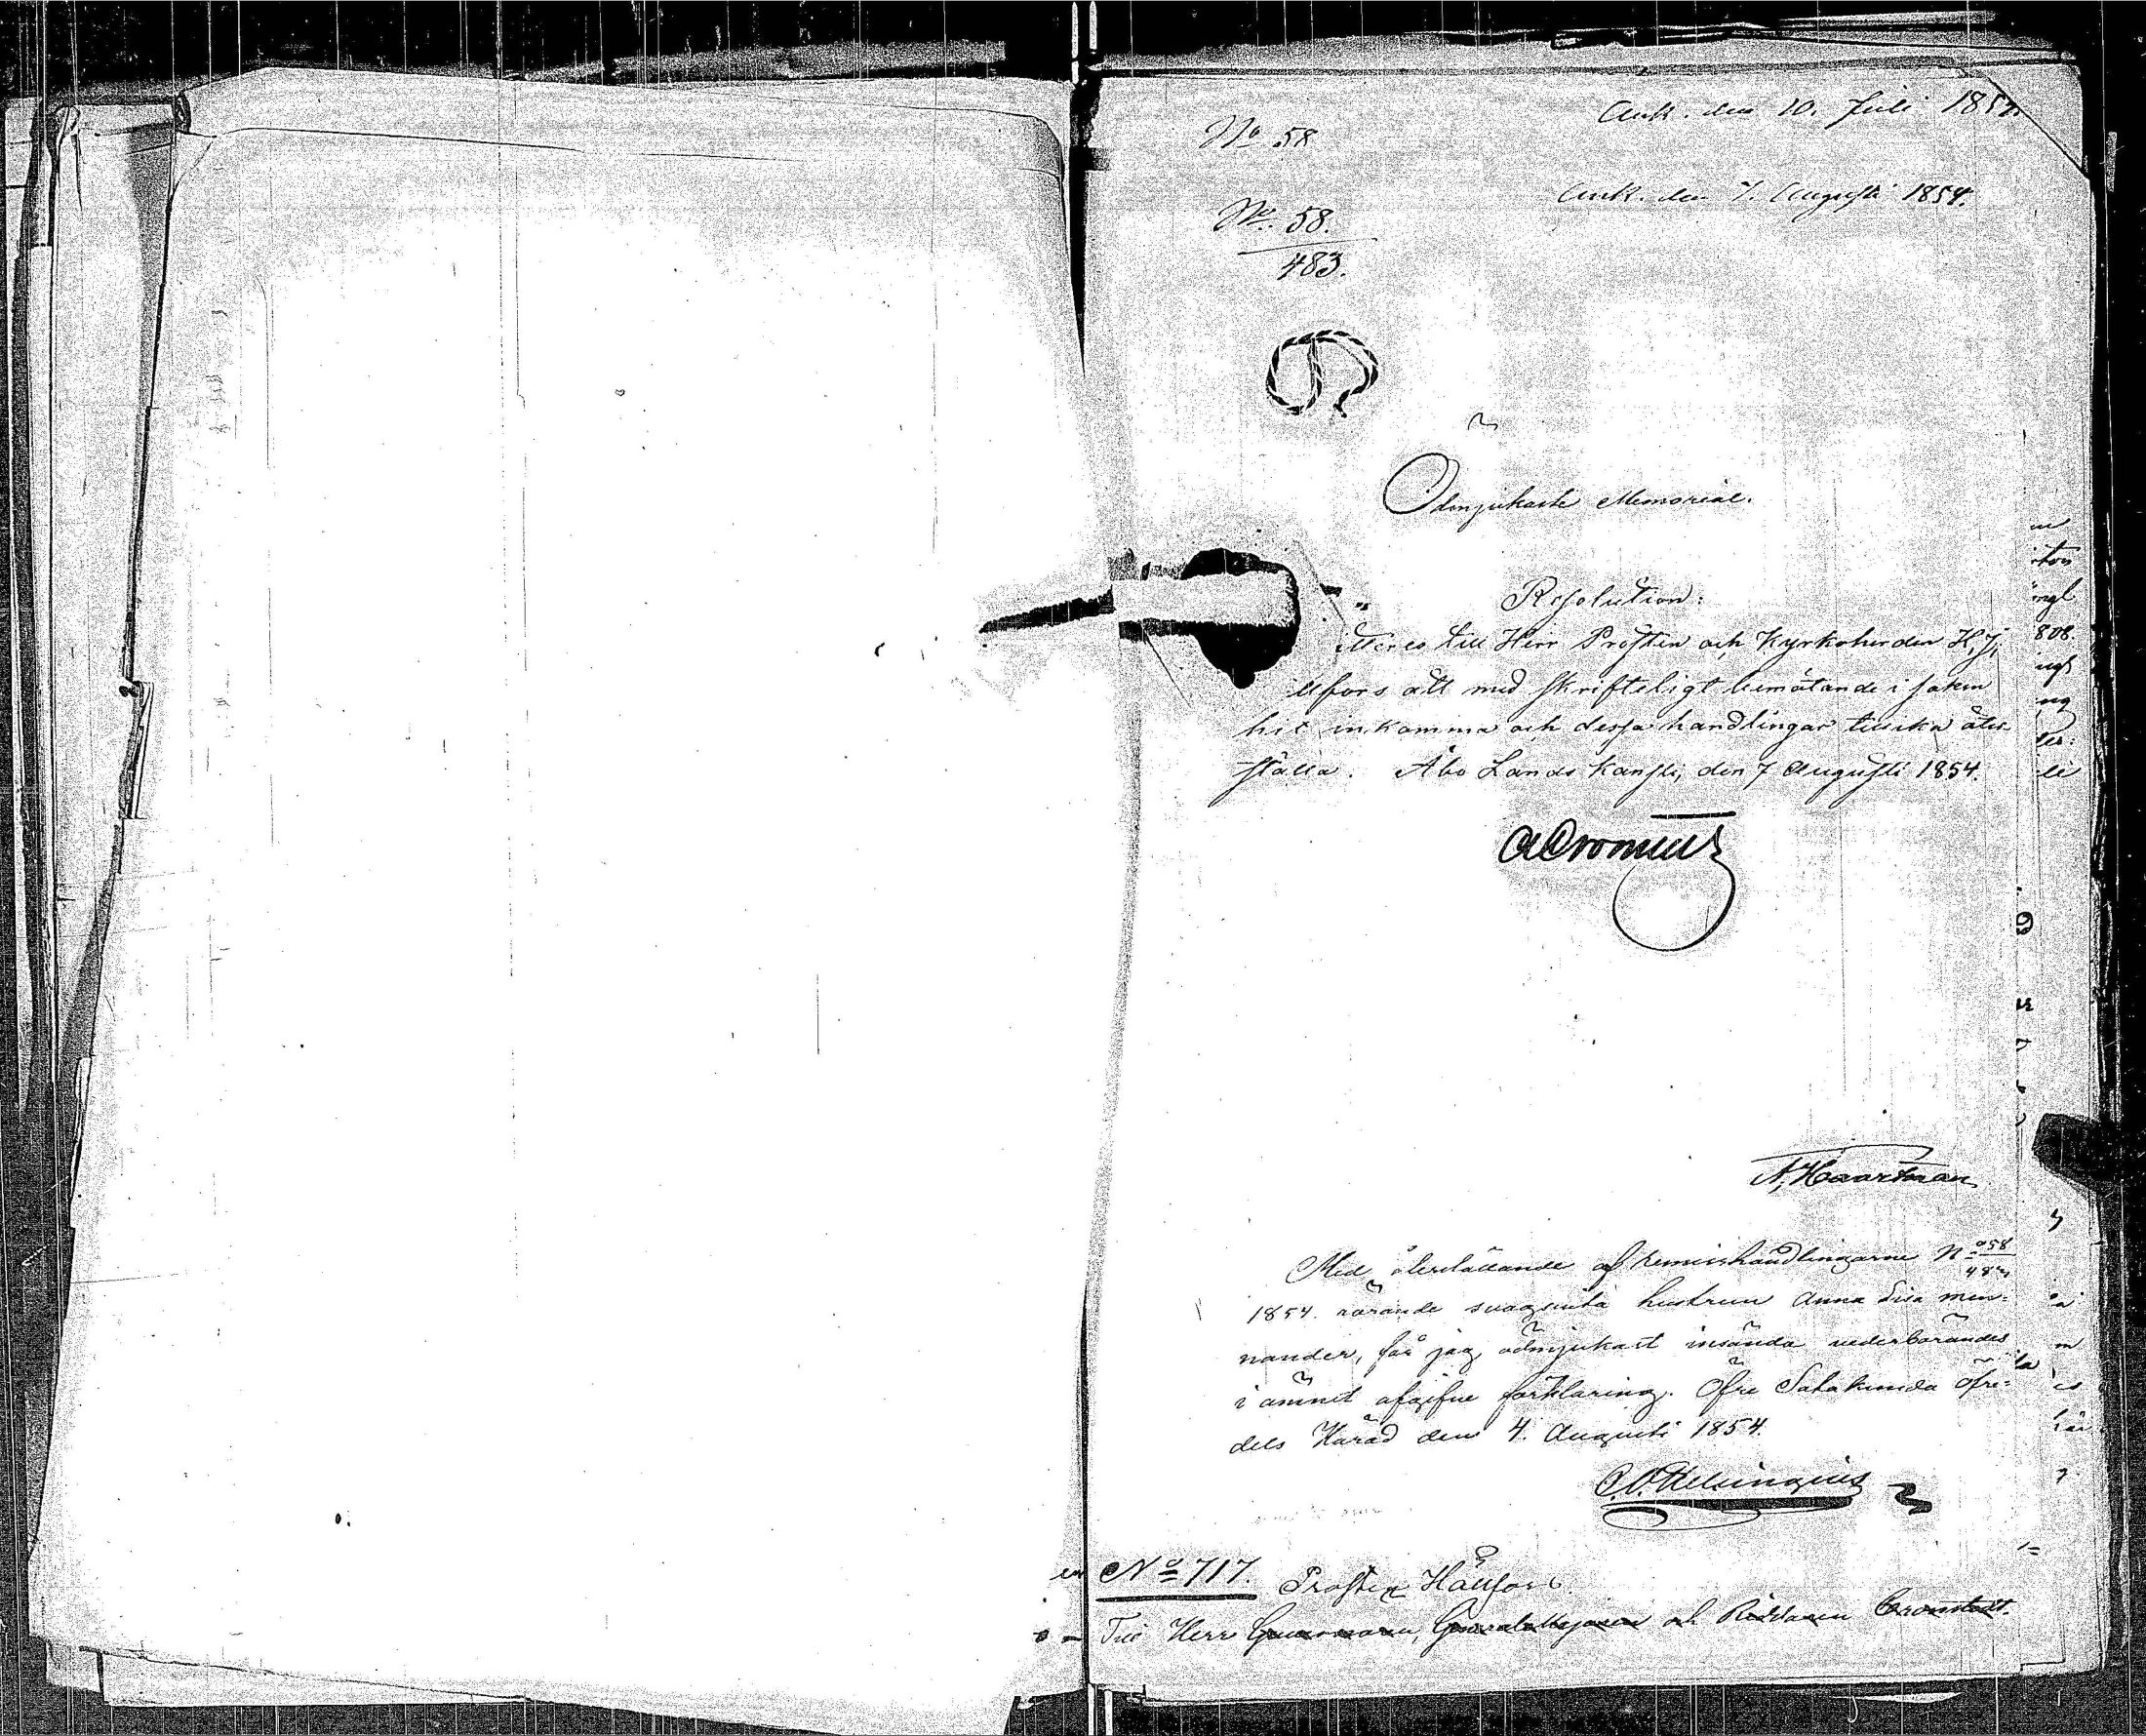 Ank. den 10. Juli 1854.
No 58
Ank. den 7. Augusti 1854.
No. 58.
483.
Ödmjukaste Memorial.
Resolution:
till Herr Prosten och Kyrkoherden H. J.
llfors att med skrifteligt bemötande i saken
hit inkomma och dessa handlingar tillika åter-
ställa. Åbo Lands Kansli, den 7 Augusti 1854.
A Cronstedt
Haartman
Med återställande af remisshandlingarne No 58
483
1854 rörande svagsinta hustrun Anna Lisa Men-
nander, får jag ödmjukast insända vederbörandes
i ämnet afgifne förklaring. Öfre Satakunda öfre-
dels Härad den 4. Augusti 1854.
Helsingius
No 717.
Prosten Hällfors.
Till Herr Guvernören, Generalmajoren och Riddaren Cronstedt.